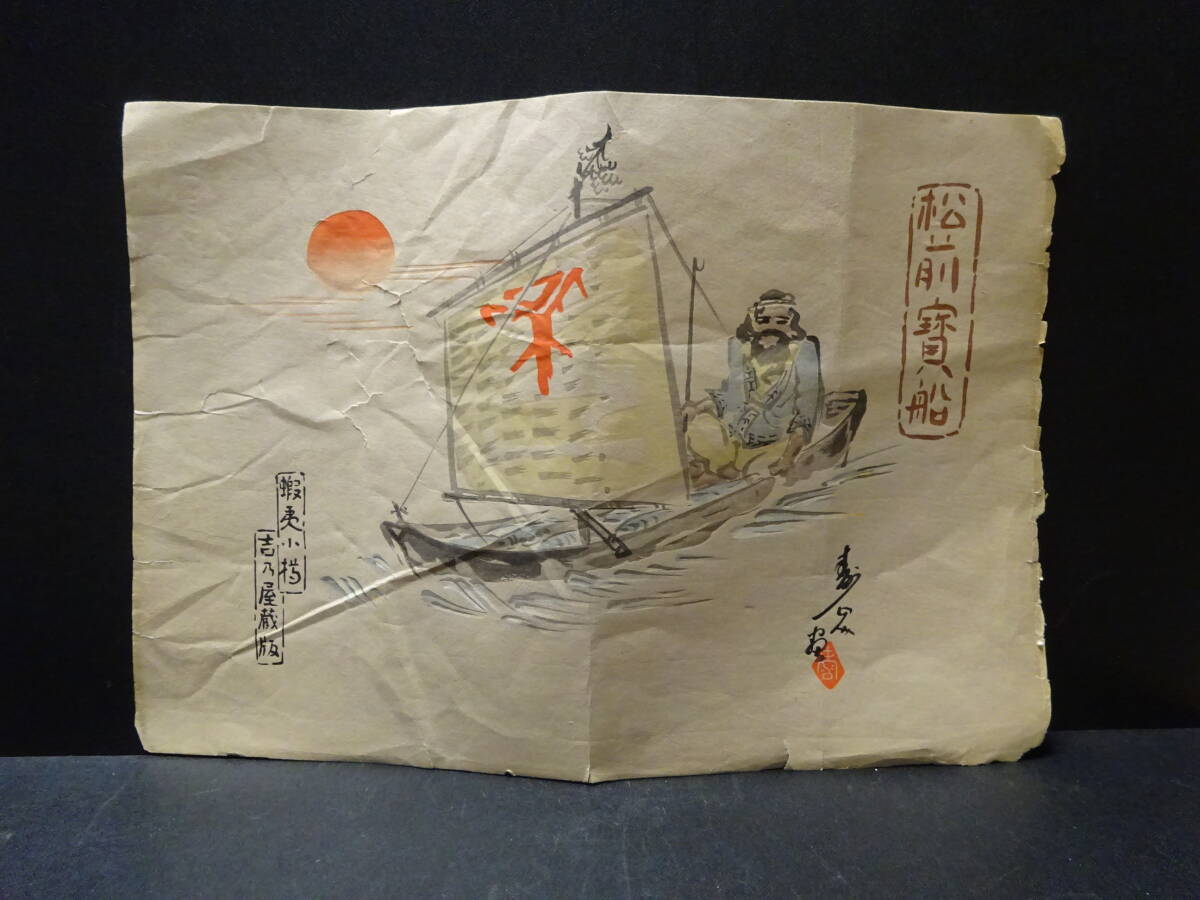 松前寳船
蝦夷小樽
吉乃屋蔵版